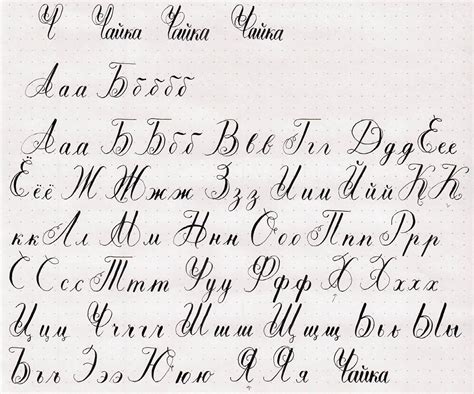 Ч Чайка Чайка Чайка
Ааа Ббббб
Ааа Б Ббб Ввв Ггг Дддд Еее
Ёёё Ж Жжж Ззз Иии Ййй К К
кк Лл Мм Ннн Ооо Ппп Ррр
С Ссс Ттт Ууу Ффф Х Хххх
Ццц Чччч Шшш Щщщ Ььь Ыы
Ъъъ Эээ Ююю Я Яя Чайка